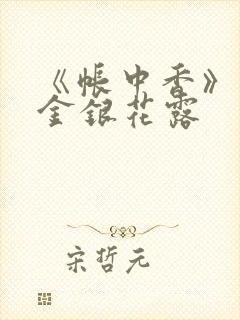 《帳中香》
金銀花露
宋哲元